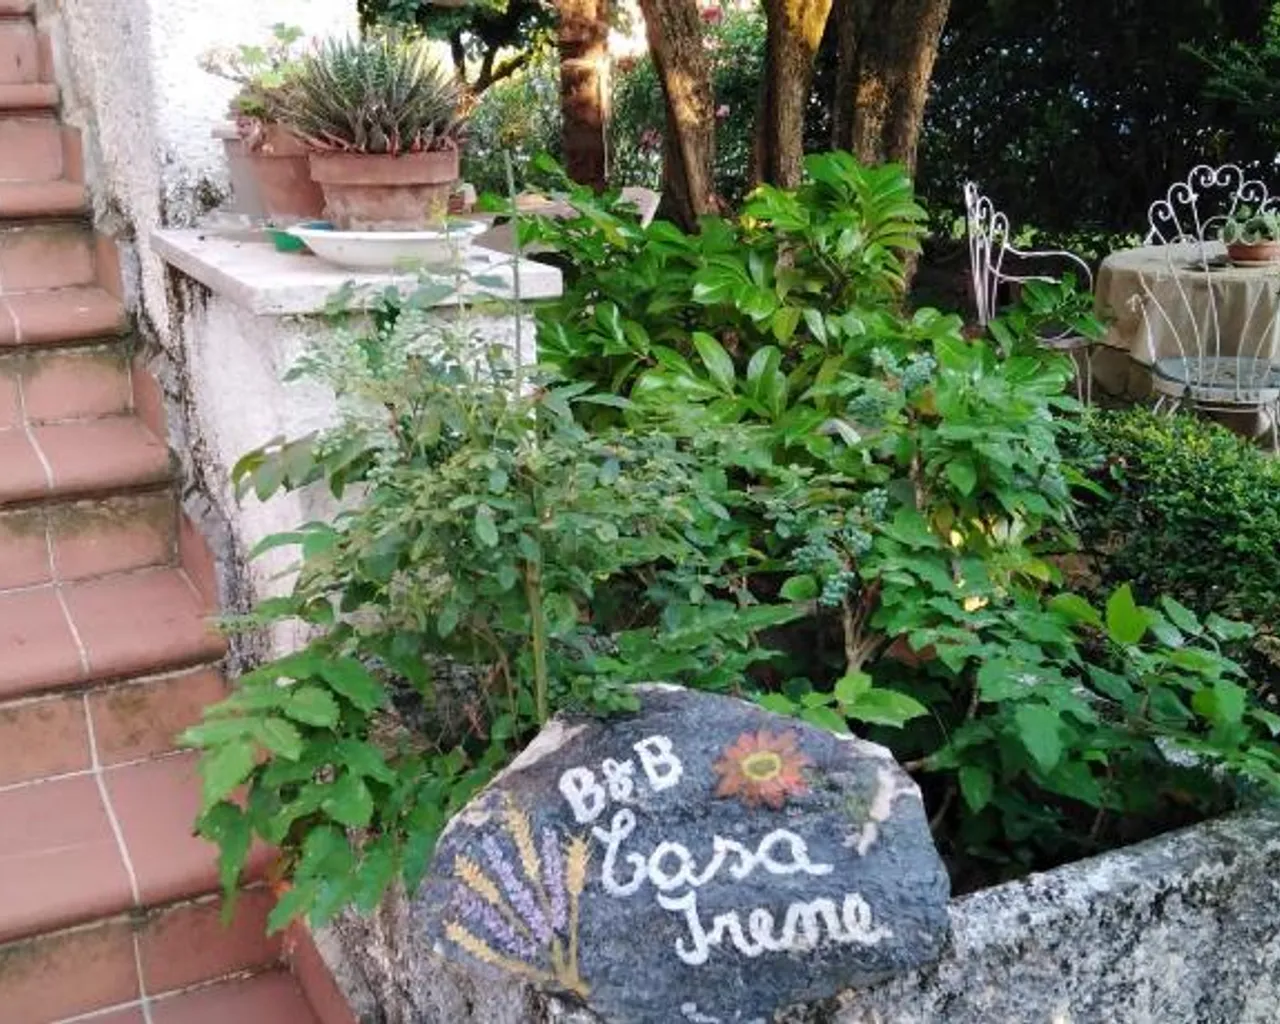 B&B
Casa
Irene